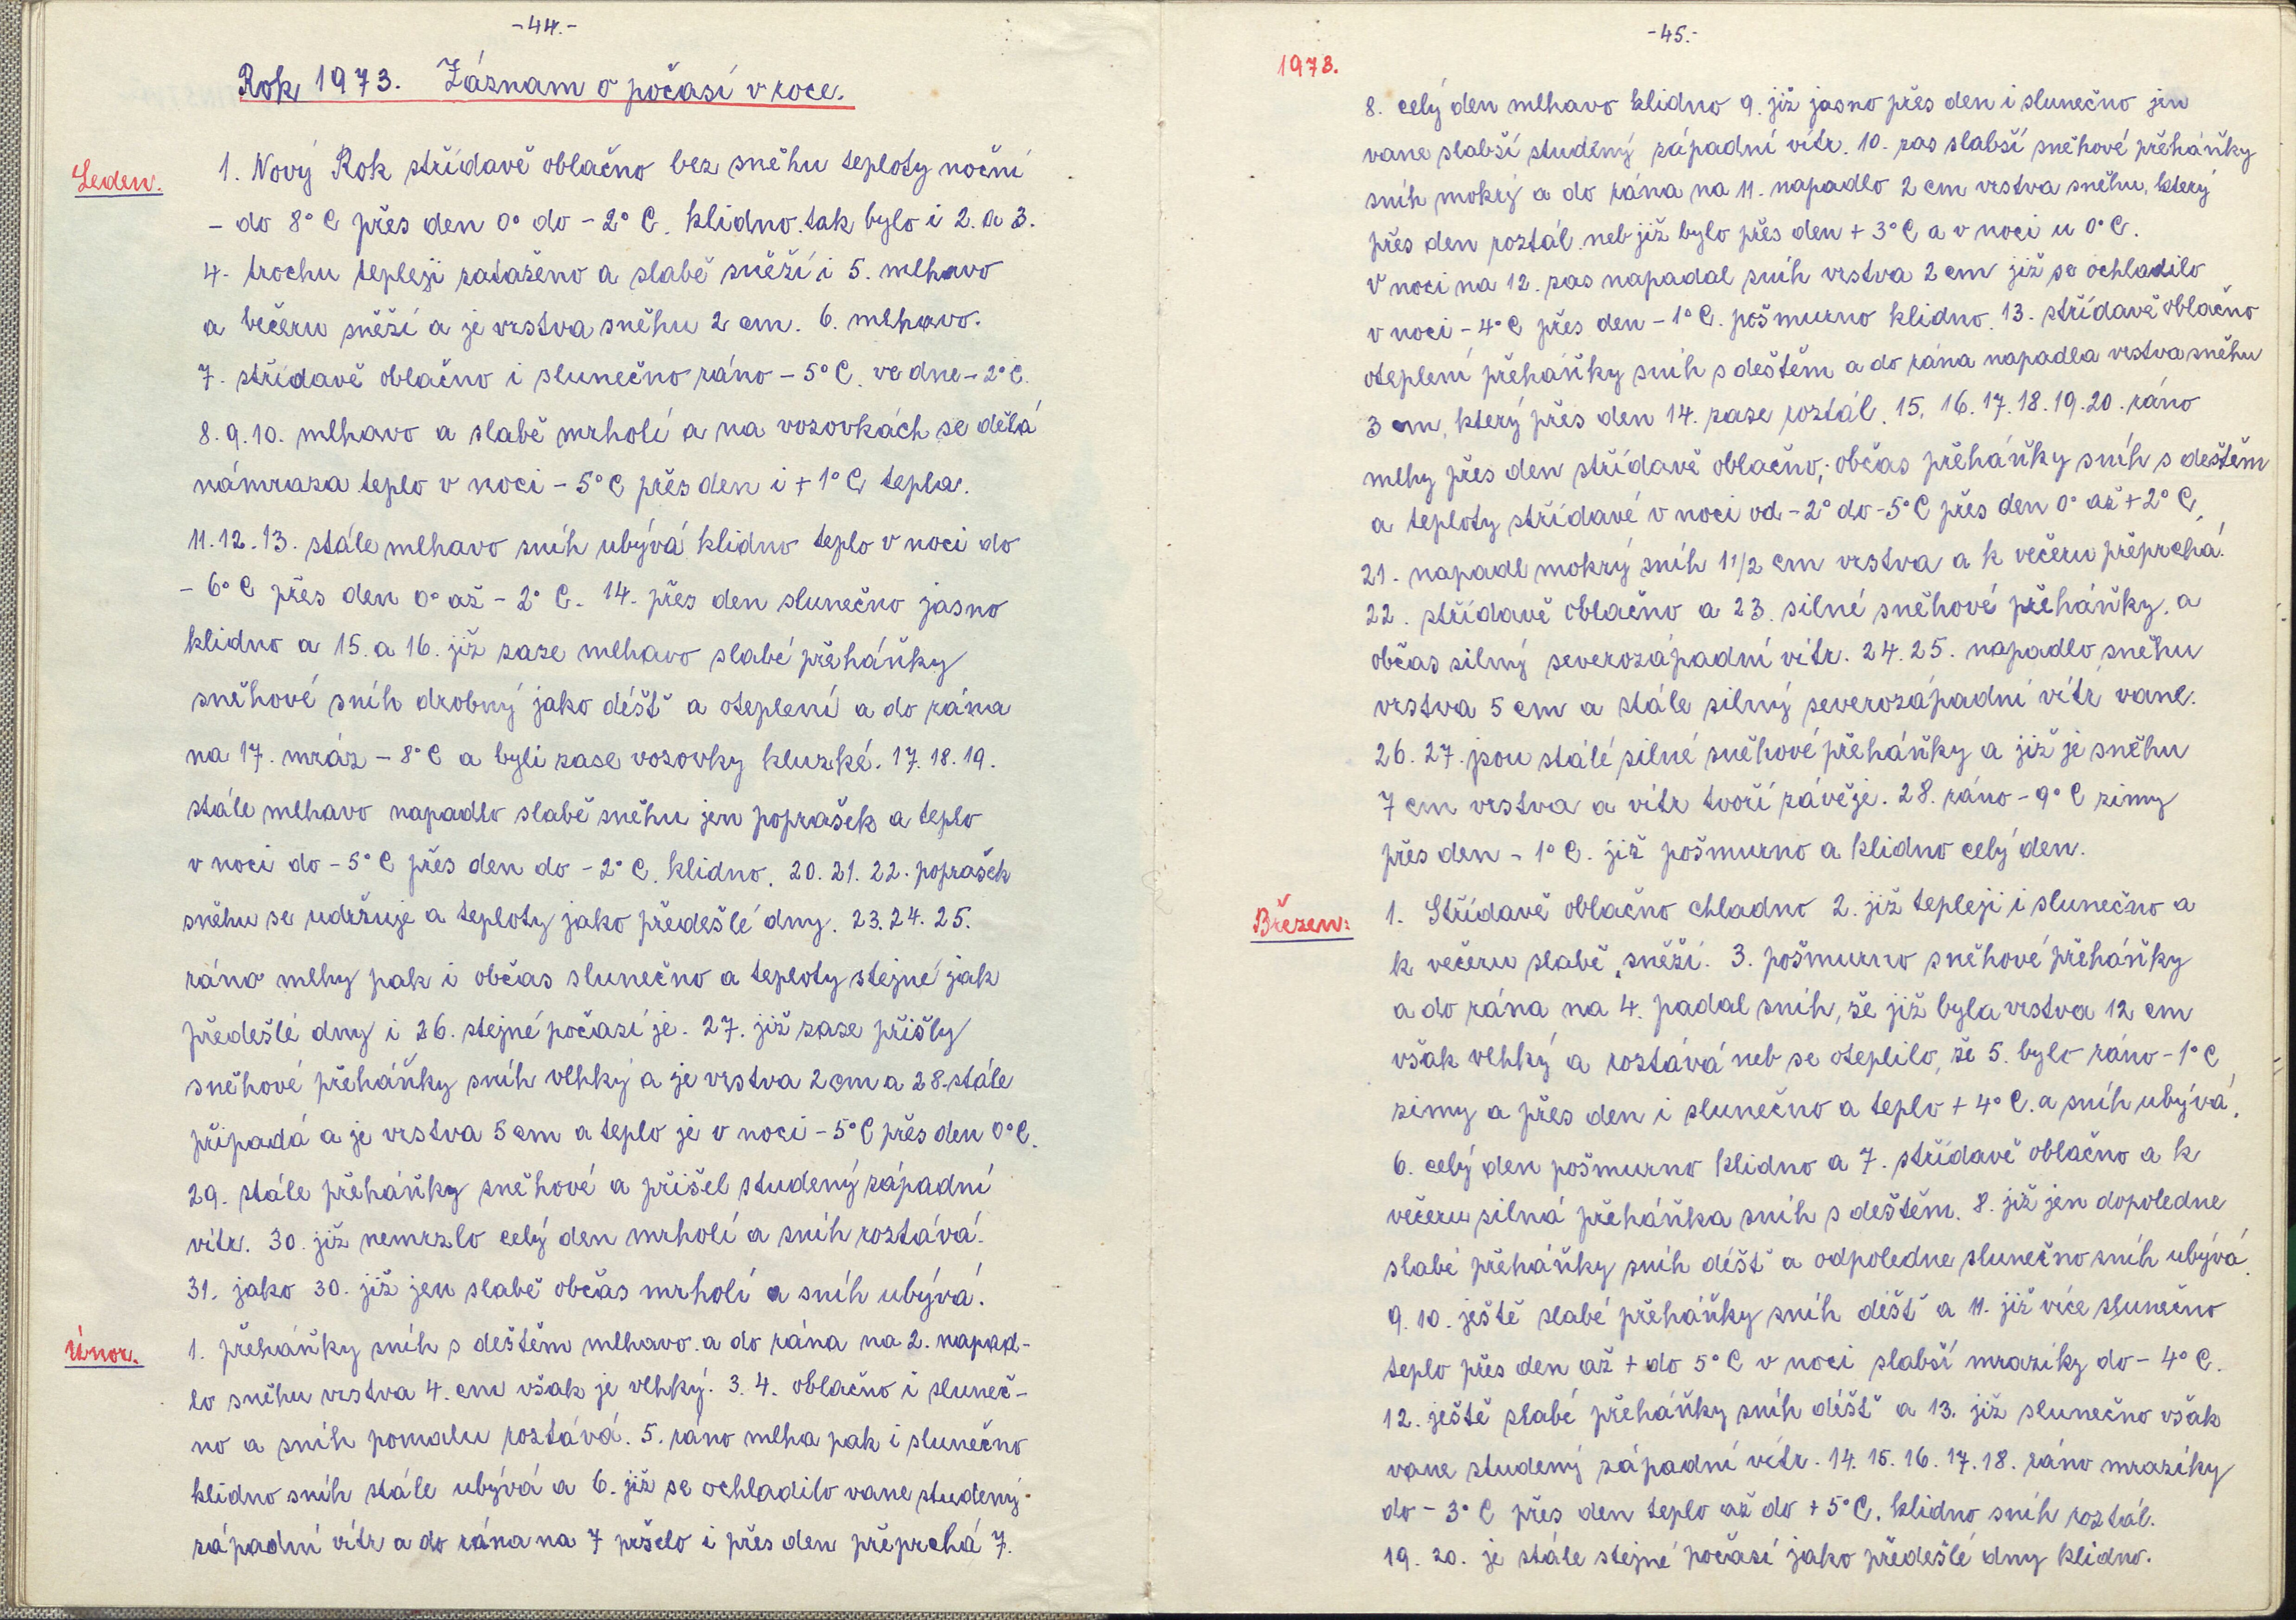 -44.-
Rok 1973. Záznam o počasí v roce.
Leden.
1. Nový Rok střídavě oblačno bez sněhu teploty noční
- do 8° C přes den 0° do - 2° C. klidno. tak bylo i 2. a 3.
4. trochu tepleji zataženo a slabě sněží i 5. mlhavo
a večeru sněží a je vrstva sněhu 2 cm. 6. mlhavo.
7. střídavě oblačno i slunečno ráno - 5° C. ve dne - 2° C.
8. 9. 10. mlhavo a slabě mrholí a na vozovkách se dělá
námraza teplo v noci - 5° C přes den i + 1° C tepla.
11. 12. 13. stále mlhavo sníh ubývá klidno teplo v noci do
- 6° C přes den 0° až - 2° C. 14. přes den slunečno jasno
klidno a 15. a 16. již zase mlhavo slabé přeháňky
sněhové sníh drobný jako déšť a oteplení a do rána
na 17. mráz - 8° C a byli zase vozovky kluzké. 17. 18. 19.
stále mlhavo napadlo slabě sněhu jen poprašek a teplo
v noci do - 5° C přes den do - 2° C. klidno. 20. 21. 22. poprašek
sněhu se udržuje a teploty jako předešlé dny. 23. 24. 25.
ráno mlhy pak i občas slunečno a teploty stejné jak
předešlé dny i 26. stejné počasí je. 27. již zase přišly
sněhové přeháňky sníh vlhký a je vrstva 2 cm a 28. stále
připadá a je vrstva 5 cm a teplo je v noci - 5° C přes den 0° C.
29. stále přeháňky sněhové a přišel studený západní
vítr. 30. již nemrzlo celý den mrholí a sníh roztává.
31. jako 30. již jen slabě občas mrholí a sníh ubývá.
Únor.
1. přeháňky sníh s deštěm mlhavo. a do rána na 2. napad-
lo sněhu vrstva 4. cm však je vlhký. 3. 4. oblačno i sluneč-
no a sníh pomalu roztává. 5. ráno mlha pak i slunečno
klidno sníh stále ubývá a 6. již se ochladilo vane studený
západní vítr a do rána na 7 pršelo i přes den přeprchá 7.
-45.-
1973.
8. celý den mlhavo klidno 9. již jasno přes den i slunečno jen
vane slabší studený západní vítr. 10. zas slabší sněhové přeháňky
sníh mokrý a do rána na 11. napadlo 2 cm vrstva sněhu, který
přes den roztál neb již bylo přes den + 3° C a v noci u 0° C.
V noci na 12. zas napadal sníh vrstva 2 cm již se ochladilo
v noci - 4° C přes den - 1° C. pošmurno klidno. 13. střídavě oblačno
oteplení přeháňky sníh s deštěm a do rána napadla vrstva sněhu
3 cm, který přes den 14. zase roztál. 15. 16. 17. 18. 19. 20. ráno
mlhy přes den střídavě oblačno; občas přeháňky sníh s deštěm
a teploty střídavé v noci od - 2° do - 5° C přes den 0° až + 2° C.
21. napadl mokrý sníh 1 1/2 cm vrstva a k večeru přeprchá.
22. střídavě oblačno a 23. silné sněhové přeháňky. a
občas silný severozápadní vítr. 24. 25. napadlo sněhu
vrstva 5 cm a stále silný severozápadní vítr vane.
26. 27. jsou stálé silné sněhové přeháňky a již je sněhu
7 cm vrstva a vítr tvoří závěje. 28. ráno - 9° C zimy
přes den - 1° C. již pošmurno a klidno celý den.
Březen:
1. Střídavě oblačno chladno 2. již tepleji i slunečno a
k večeru slabě sněží. 3. pošmurno sněhové přeháňky
a do rána na 4. padal sníh, že již byla vrstva 12 cm
však vlhký a roztává neb se oteplilo, že 5. bylo ráno - 1° C
zimy a přes den i slunečno a teplo + 4° C. a sníh ubývá.
6. celý den pošmurno klidno a 7. střídavě oblačno a k
večeru silná přeháňka sníh s deštěm. 8. již jen dopoledne
slabé přeháňky sníh déšť a odpoledne slunečno sníh ubývá.
9. 10. ještě slabé přeháňky sníh déšť a 11. již více slunečno
teplo přes den až + do 5° C v noci slabší mrazíky do - 4° C.
12. ještě slabé přeháňky sníh déšť a 13. již slunečno však
vane studený západní vítr. 14. 15. 16. 17. 18. ráno mrazíky
do - 3° C přes den teplo až do + 5° C. klidno sníh roztál.
19. 20. je stále stejné počasí jako předešlé dny klidno.